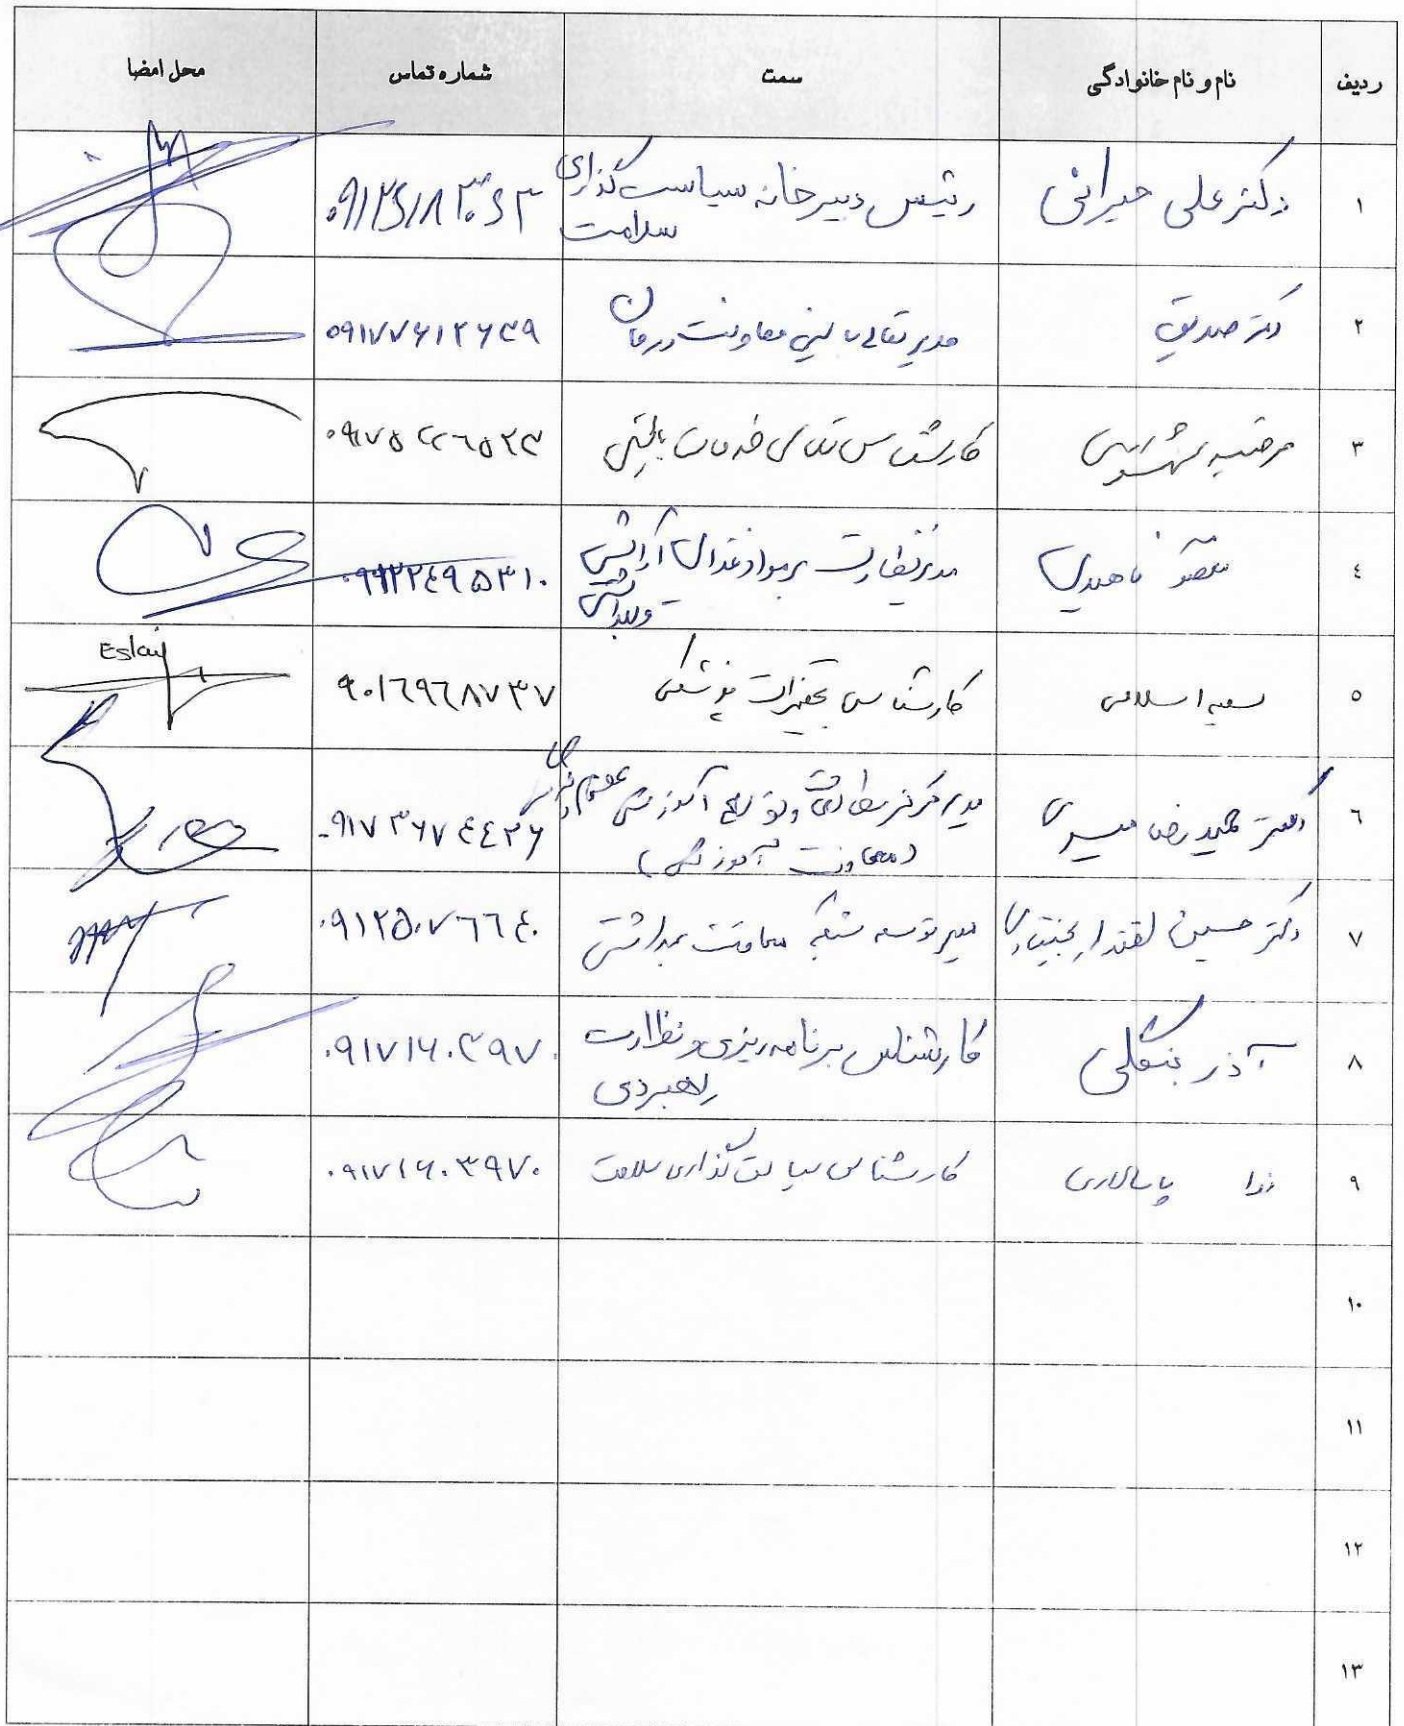 ردیف نام و نام خانوادگی سمت شماره تماس محل امضا
۱ دکتر علی حیرانی رئیس دبیرخانه سیاست گذاری
سلامت
۲ دکتر صدیق مدیر تعالی بالینی معاونت درمان ۰۹۱۷۷۶۱۲۶۳۹
۳ مرضیه کارشناس تعالی خدمات بالینی ۰۹۱۷۵۲۲۶۵۲۳
۴ ناهیدی مدیر نظارت بر مواد غذایی آرایشی ۰۹۹۲۲۴۹۵۳۱۰
و بهداشتی
۵ سمیه اسلامی کارشناس تجهیزات پزشکی ۹۰۱۶۹۶۸۷۳۷ Eslami
۶ دکتر حمیدرضا میری مدیر مرکز مطالعات و توسعه آموزش علوم پزشکی ۰۹۱۷۳۶۷۴۴۲۶
(معاونت آموزشی)
۷ دکتر حسین لقندار مدیر توسعه شبکه معاونت بهداشتی ۰۹۱۲۵۰۷۶۶۴۰
۸ آذر بنگلی کارشناس برنامه ریزی و نظارت ۰۹۱۷۱۶۰۳۹۷۰
راهبردی
۹ ندا پاسالاری کارشناس سیاست گذاری سلامت ۰۹۱۷۱۶۰۳۹۷۰
۱۰
۱۱
۱۲
۱۳